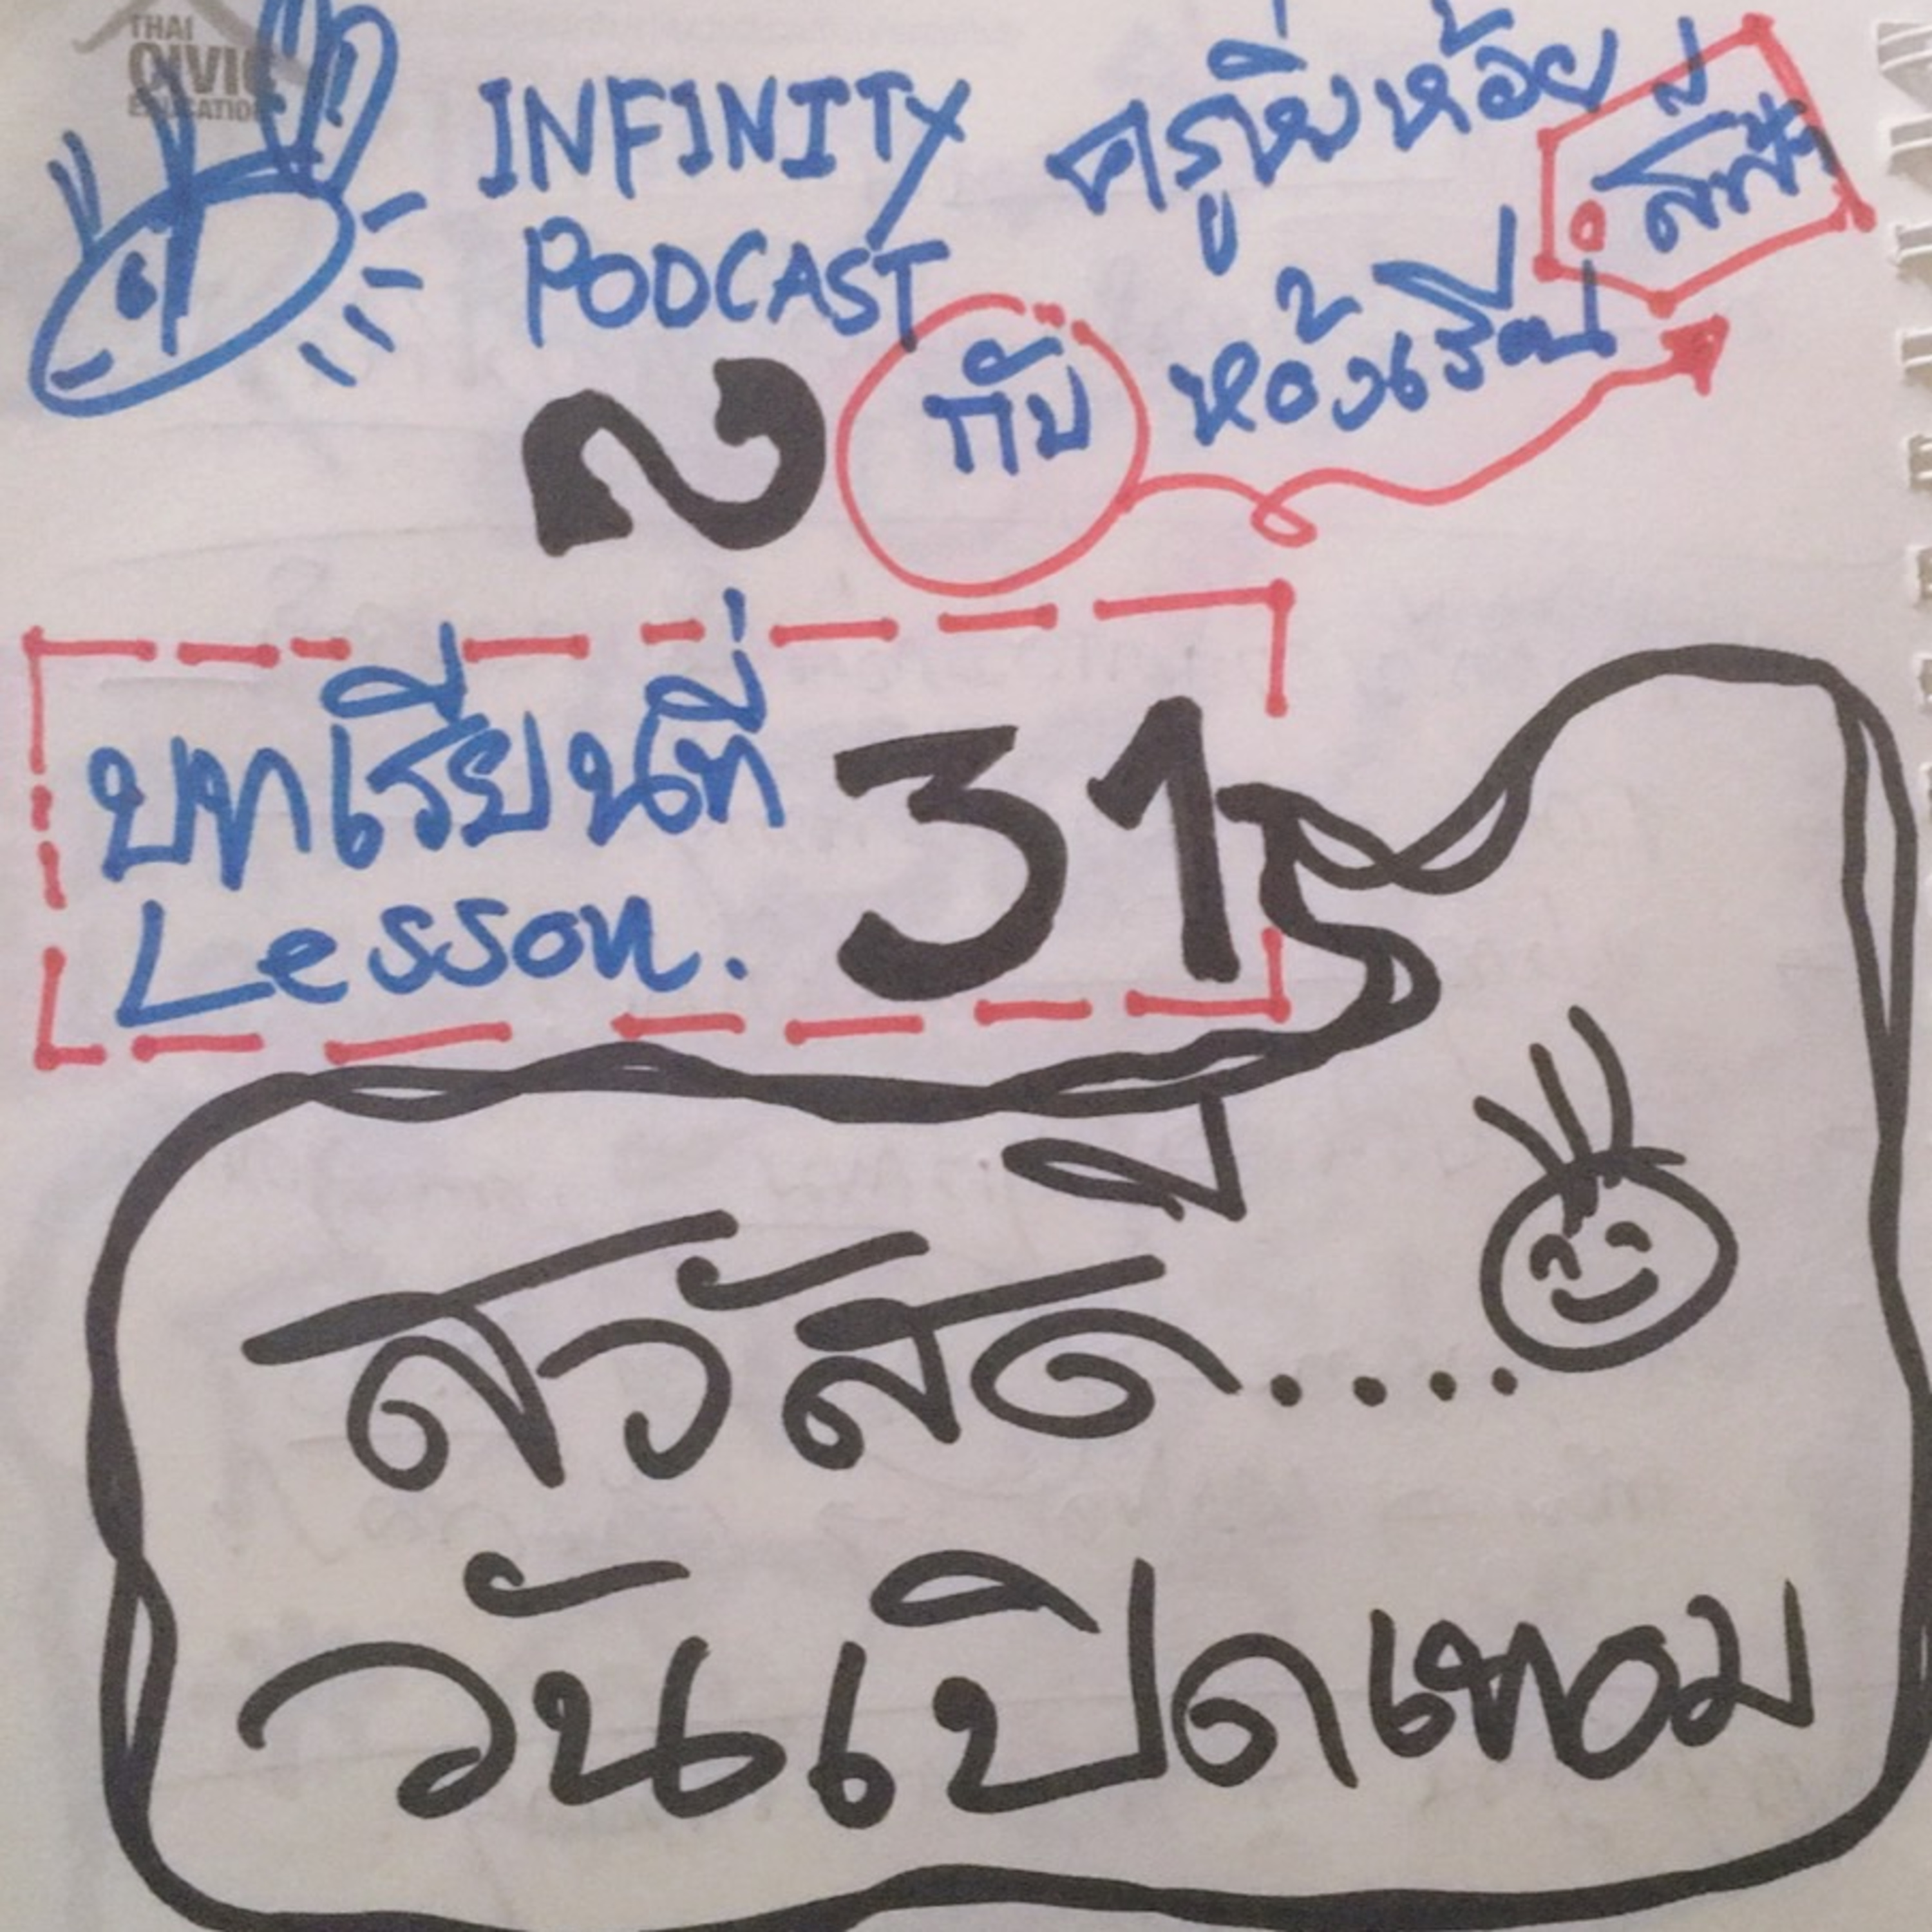 THAI
CIVIC
EDUCATION
INFINITY
PODCAST
ครูหิ่งห้อย
กับ
ห้องเรียน
สี่ฟ้า
บทเรียนที่ 31
Lesson.
สวัสดี.....
วันเปิดเทอม